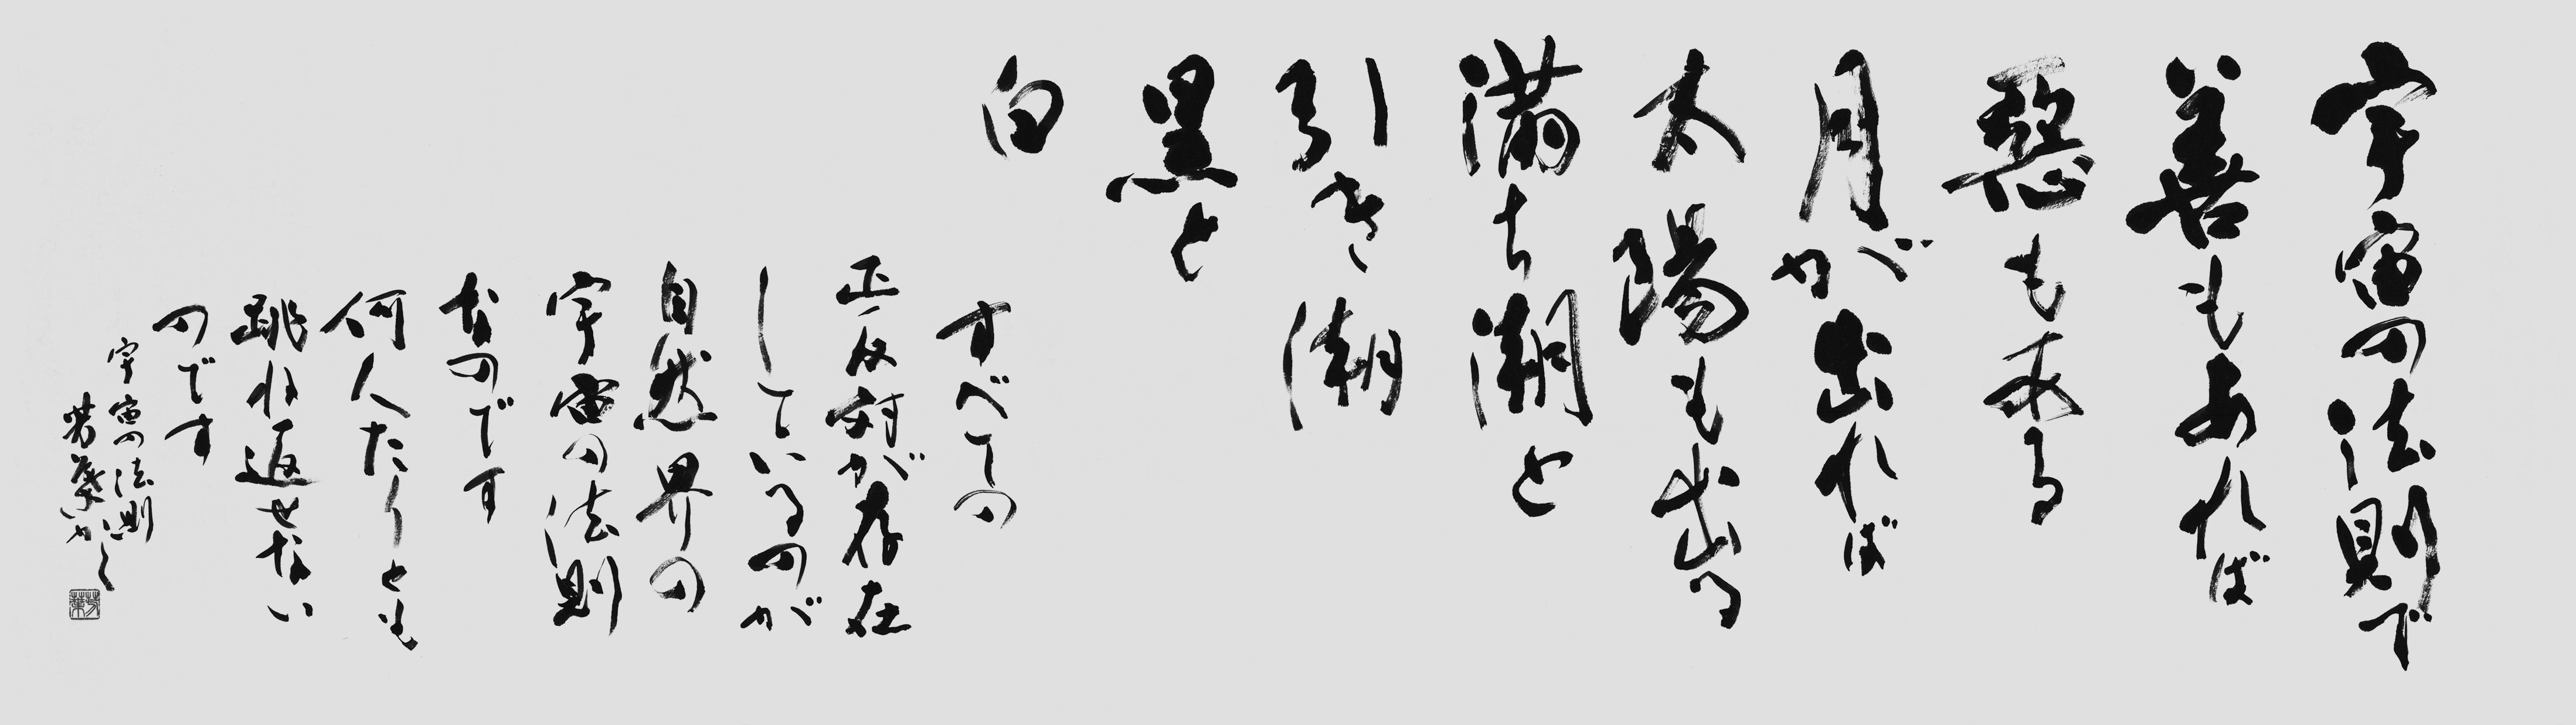 宇宙の法則で
善もあれば
悪もある
月が出れば
太陽も出る
満ち潮と
引き潮
黒と
白
すべての
正反対が存在
しているのが
自然界の
宇宙の法則
なのです
何人たりとも
跳ね返せない
のです
宇宙の法則
芳葉かく
芳葉